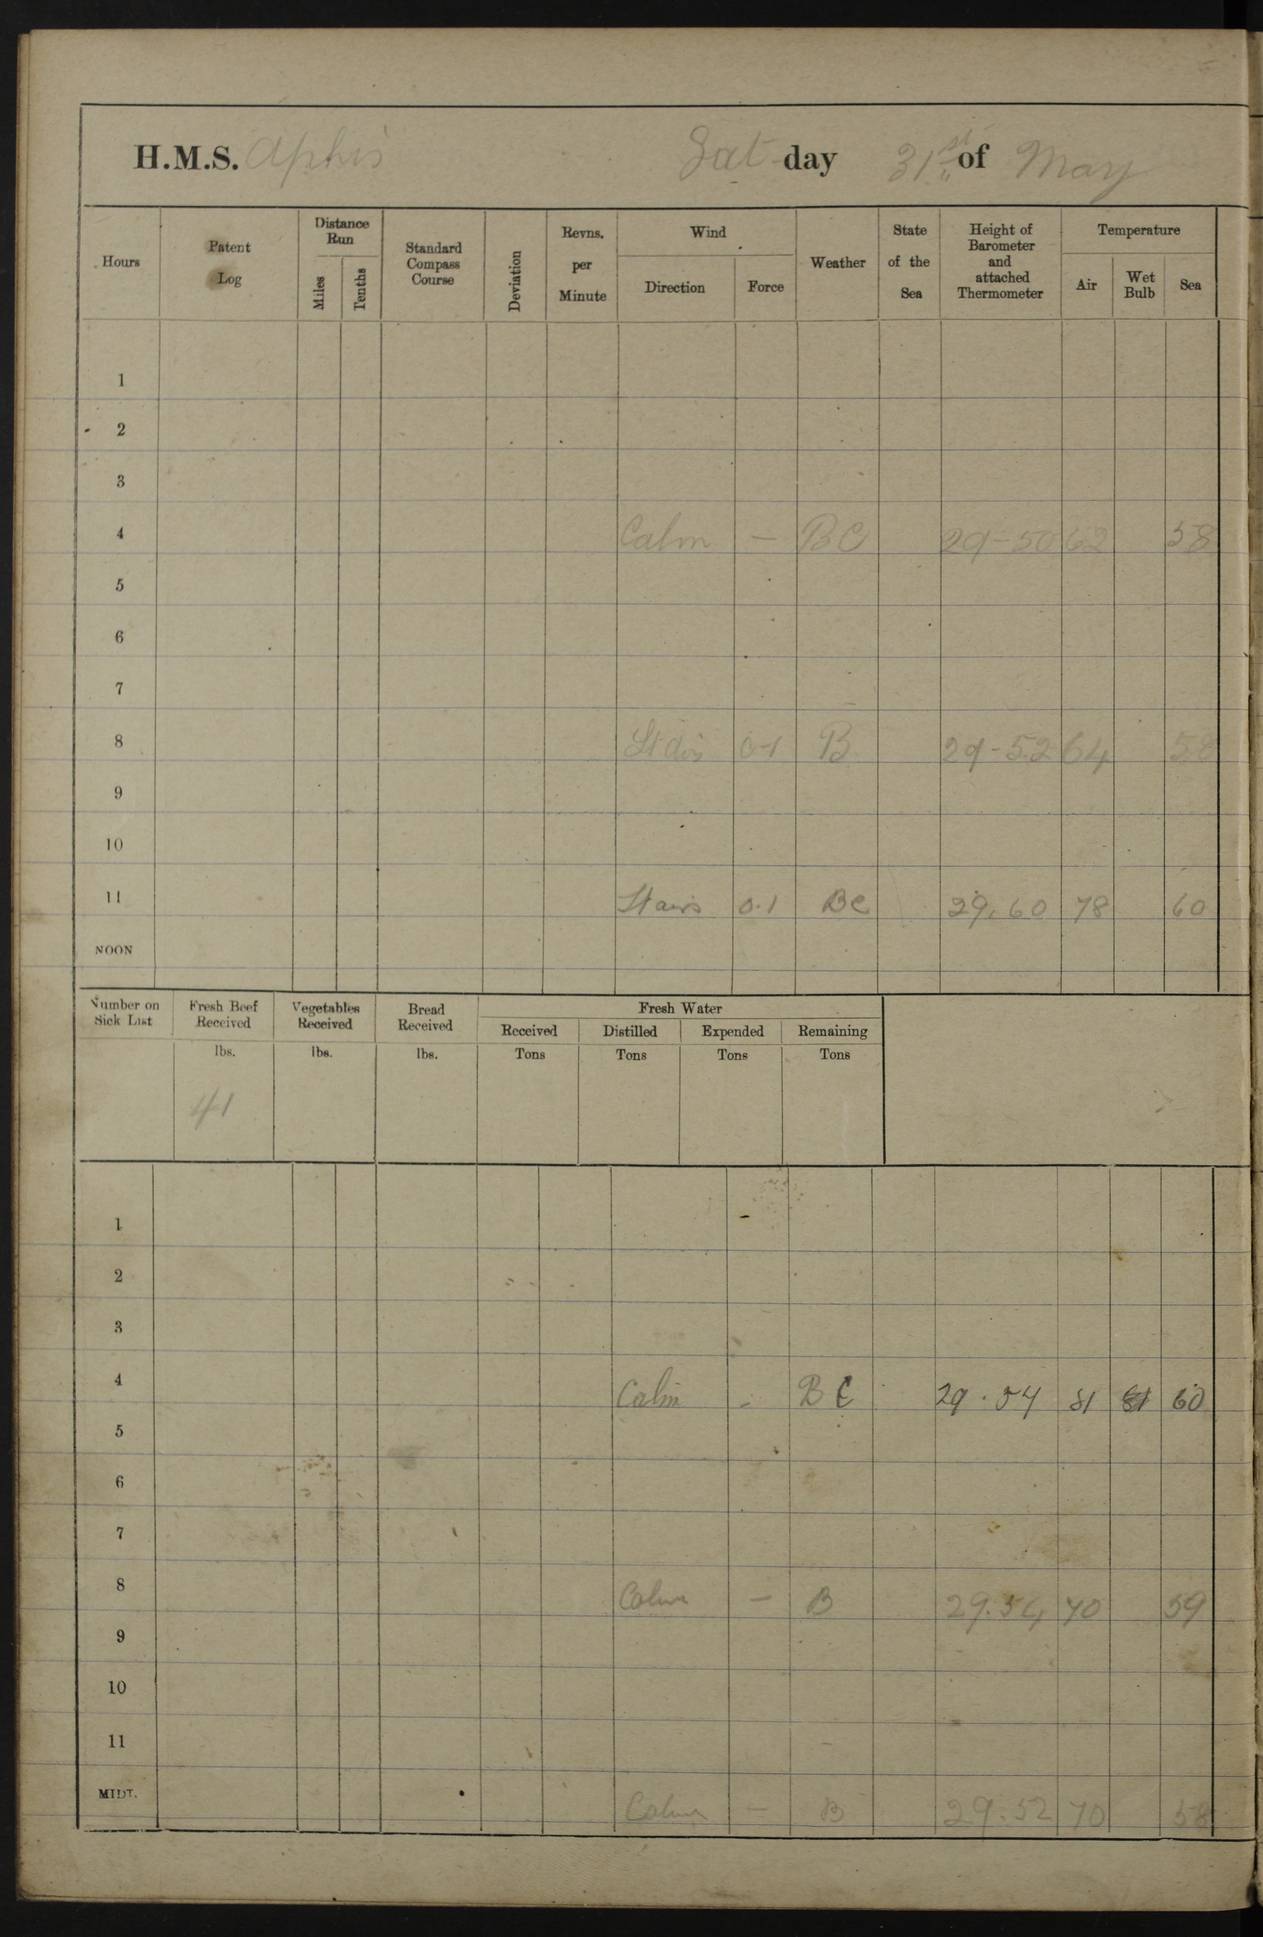 H.M.S. Aphis Satday 31st of May
Hours Patent Log Distance Run Miles Tenths Standard Compass Course Deviation Revns. per Minute Wind Direction Force Weather State of the Sea Height of Barometer and attached Thermometer Temperature Air Wet Bulb Sea
1
2
3
4 Calm — BC 29-50 62 58
5
6
7
8 0-1 B 29-52 64 58
9
10
11 0.1 BC 29.60 78 60
NOON
Number on Sick List Fresh Beef Received Vegetables Received Bread Received Fresh Water Received Distilled Expended Remaining
lbs. lbs. lbs. Tons Tons Tons Tons
41
1
2
3
4 Calm - BC 29.54 81 60
5
6
7
8 Calm — B 29.54 70 59
9
10
11
MIDT. Calm — B 29.52 70 58